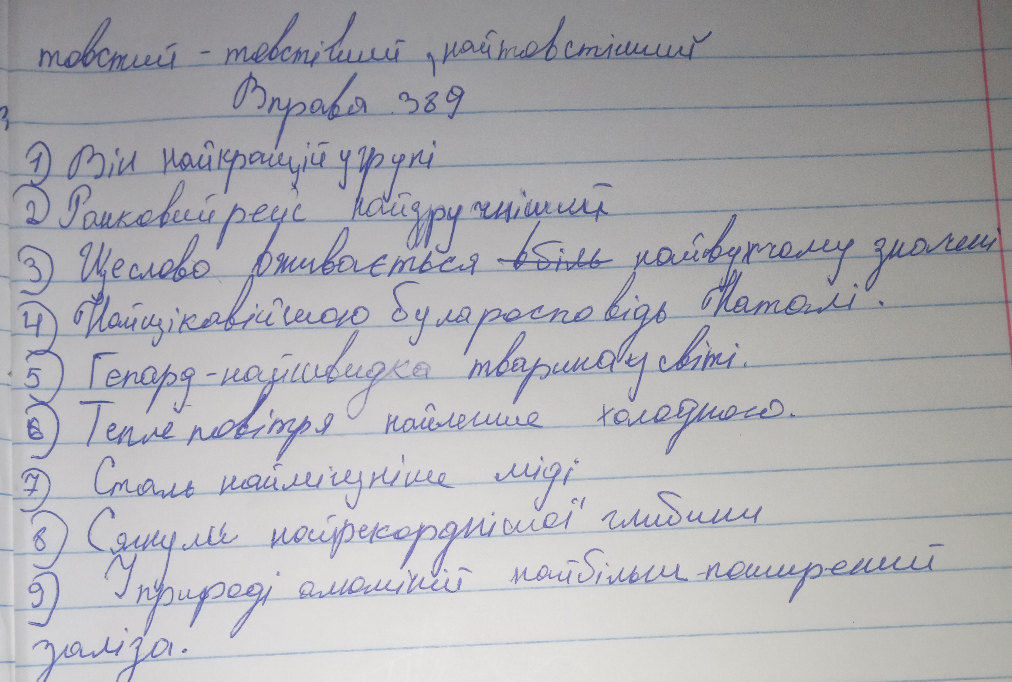 товстий - товстіший, найтовстіший
Вправа 389
1) Він найкращий у групі
2) Ранковий рейс найзручніший
3) Це слово вживається вбіль найвужчому значені
4) Найцікавійшою була росповідь Наталі.
5) Гепард - найшвидка тварина у світі.
6) Тепле повітря найлегше холодного.
7) Сталь найміцніше міді
8) Сягнули найрекорднішої глибини
9) У природі алюміній найбільш поширений
заліза.